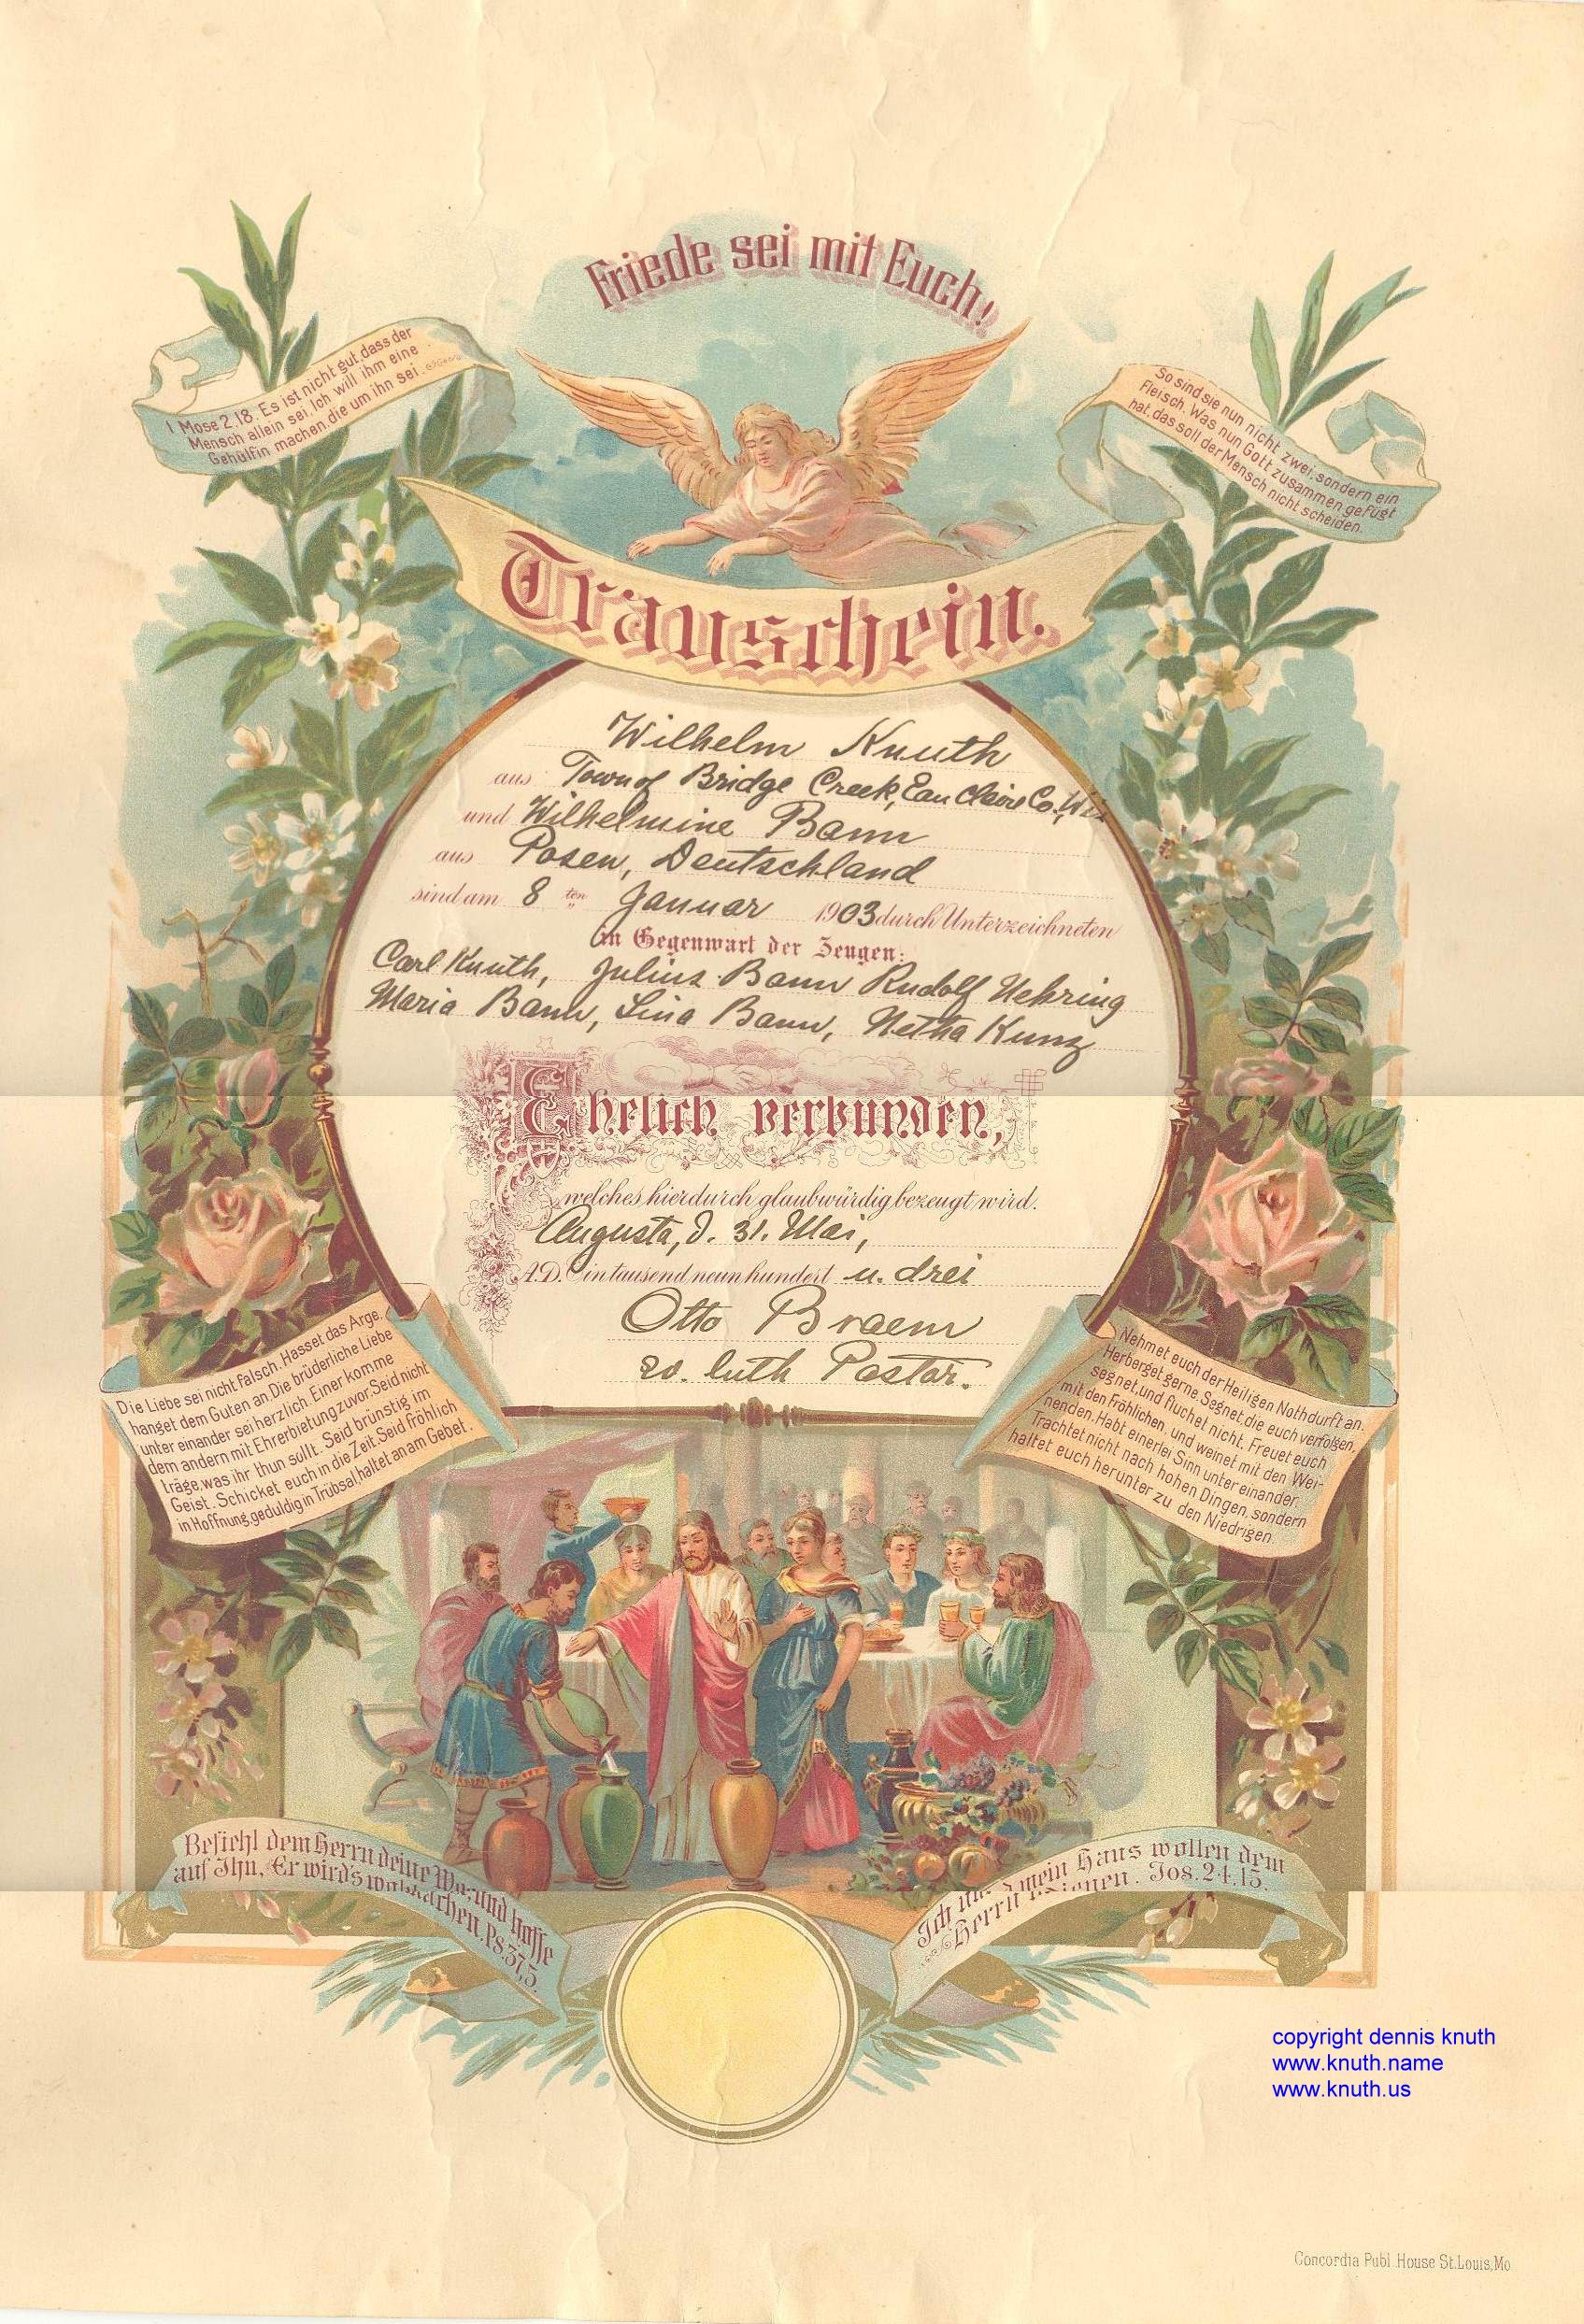 Friede sei mit Euch!
1 Mose 2,18. Es ist nicht gut, dass der
Mensch allein sei, Ich will ihm eine
Gehülfin machen, die um ihn sei.
So sind sie nun nicht zwei, sondern ein
Fleisch. Was nun Gott zusammen gefügt
hat, das soll der Mensch nicht scheiden.
Trauschein.
Wilhelm Knuth
aus Town of Bridge Creek, Eau Claire Co., Wis
und Wilhelmine Bann
aus Posen, Deutschland
sind am 8 ten Januar 1903 durch Unterzeichneten
in Gegenwart der Zeugen:
Carl Knuth, Julius Bann Rudolf Nehring
Maria Bann, Lina Bann, Netha Kunz
Ehelich verbunden,
welches hierdurch glaubwürdig bezeugt wird.
Augusta, d. 31. Mai,
A.D. Eintausend neunhundert u. drei
Otto Braem
ev. luth Pastor.
Die Liebe sei nicht falsch. Hasset das Arge,
hanget dem Guten an. Die brüderliche Liebe
unter einander sei herzlich. Einer komme
dem andern mit Ehrerbietung zuvor. Seid nicht
träge, was ihr thun sollt. Seid brünstig im
Geist. Schicket euch in die Zeit. Seid fröhlich
in Hoffnung, geduldig in Trübsal, haltet an am Gebet.
Nehmet euch der Heiligen Nothdurft an.
Herberget gerne. Segnet, die euch verfolgen,
segnet, und fluchet nicht. Freuet euch
mit den Fröhlichen, und weinet mit den Wei-
nenden. Habt einerlei Sinn unter einander.
Trachtet nicht nach hohen Dingen, sondern
haltet euch herunter zu den Niedrigen.
Befiehl dem Herrn deine Wege und hoffe
auf Ihn, Er wird's wohl machen. Ps. 37,5.
Ich und mein Haus wollen dem
Herrn dienen. Jos. 24. 15.
copyright dennis knuth
www.knuth.name
www.knuth.us
Concordia Publ. House St. Louis, Mo